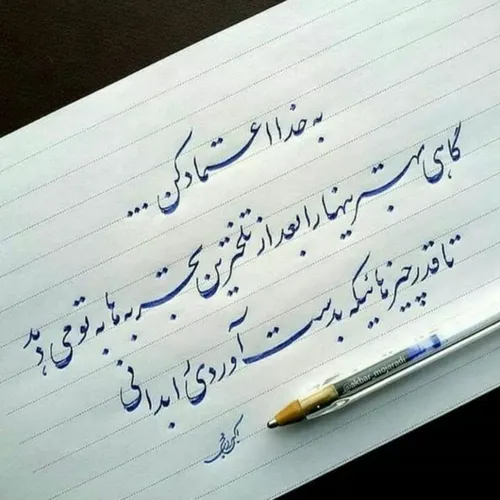 به خدا اعتماد کن ...
گاهی بهترینها را بعد از تلخترین تجربه ها به تو می دهد
تا قدر چیزهائیکه بدست آوردی را بدانی
@akbar_mojaradi